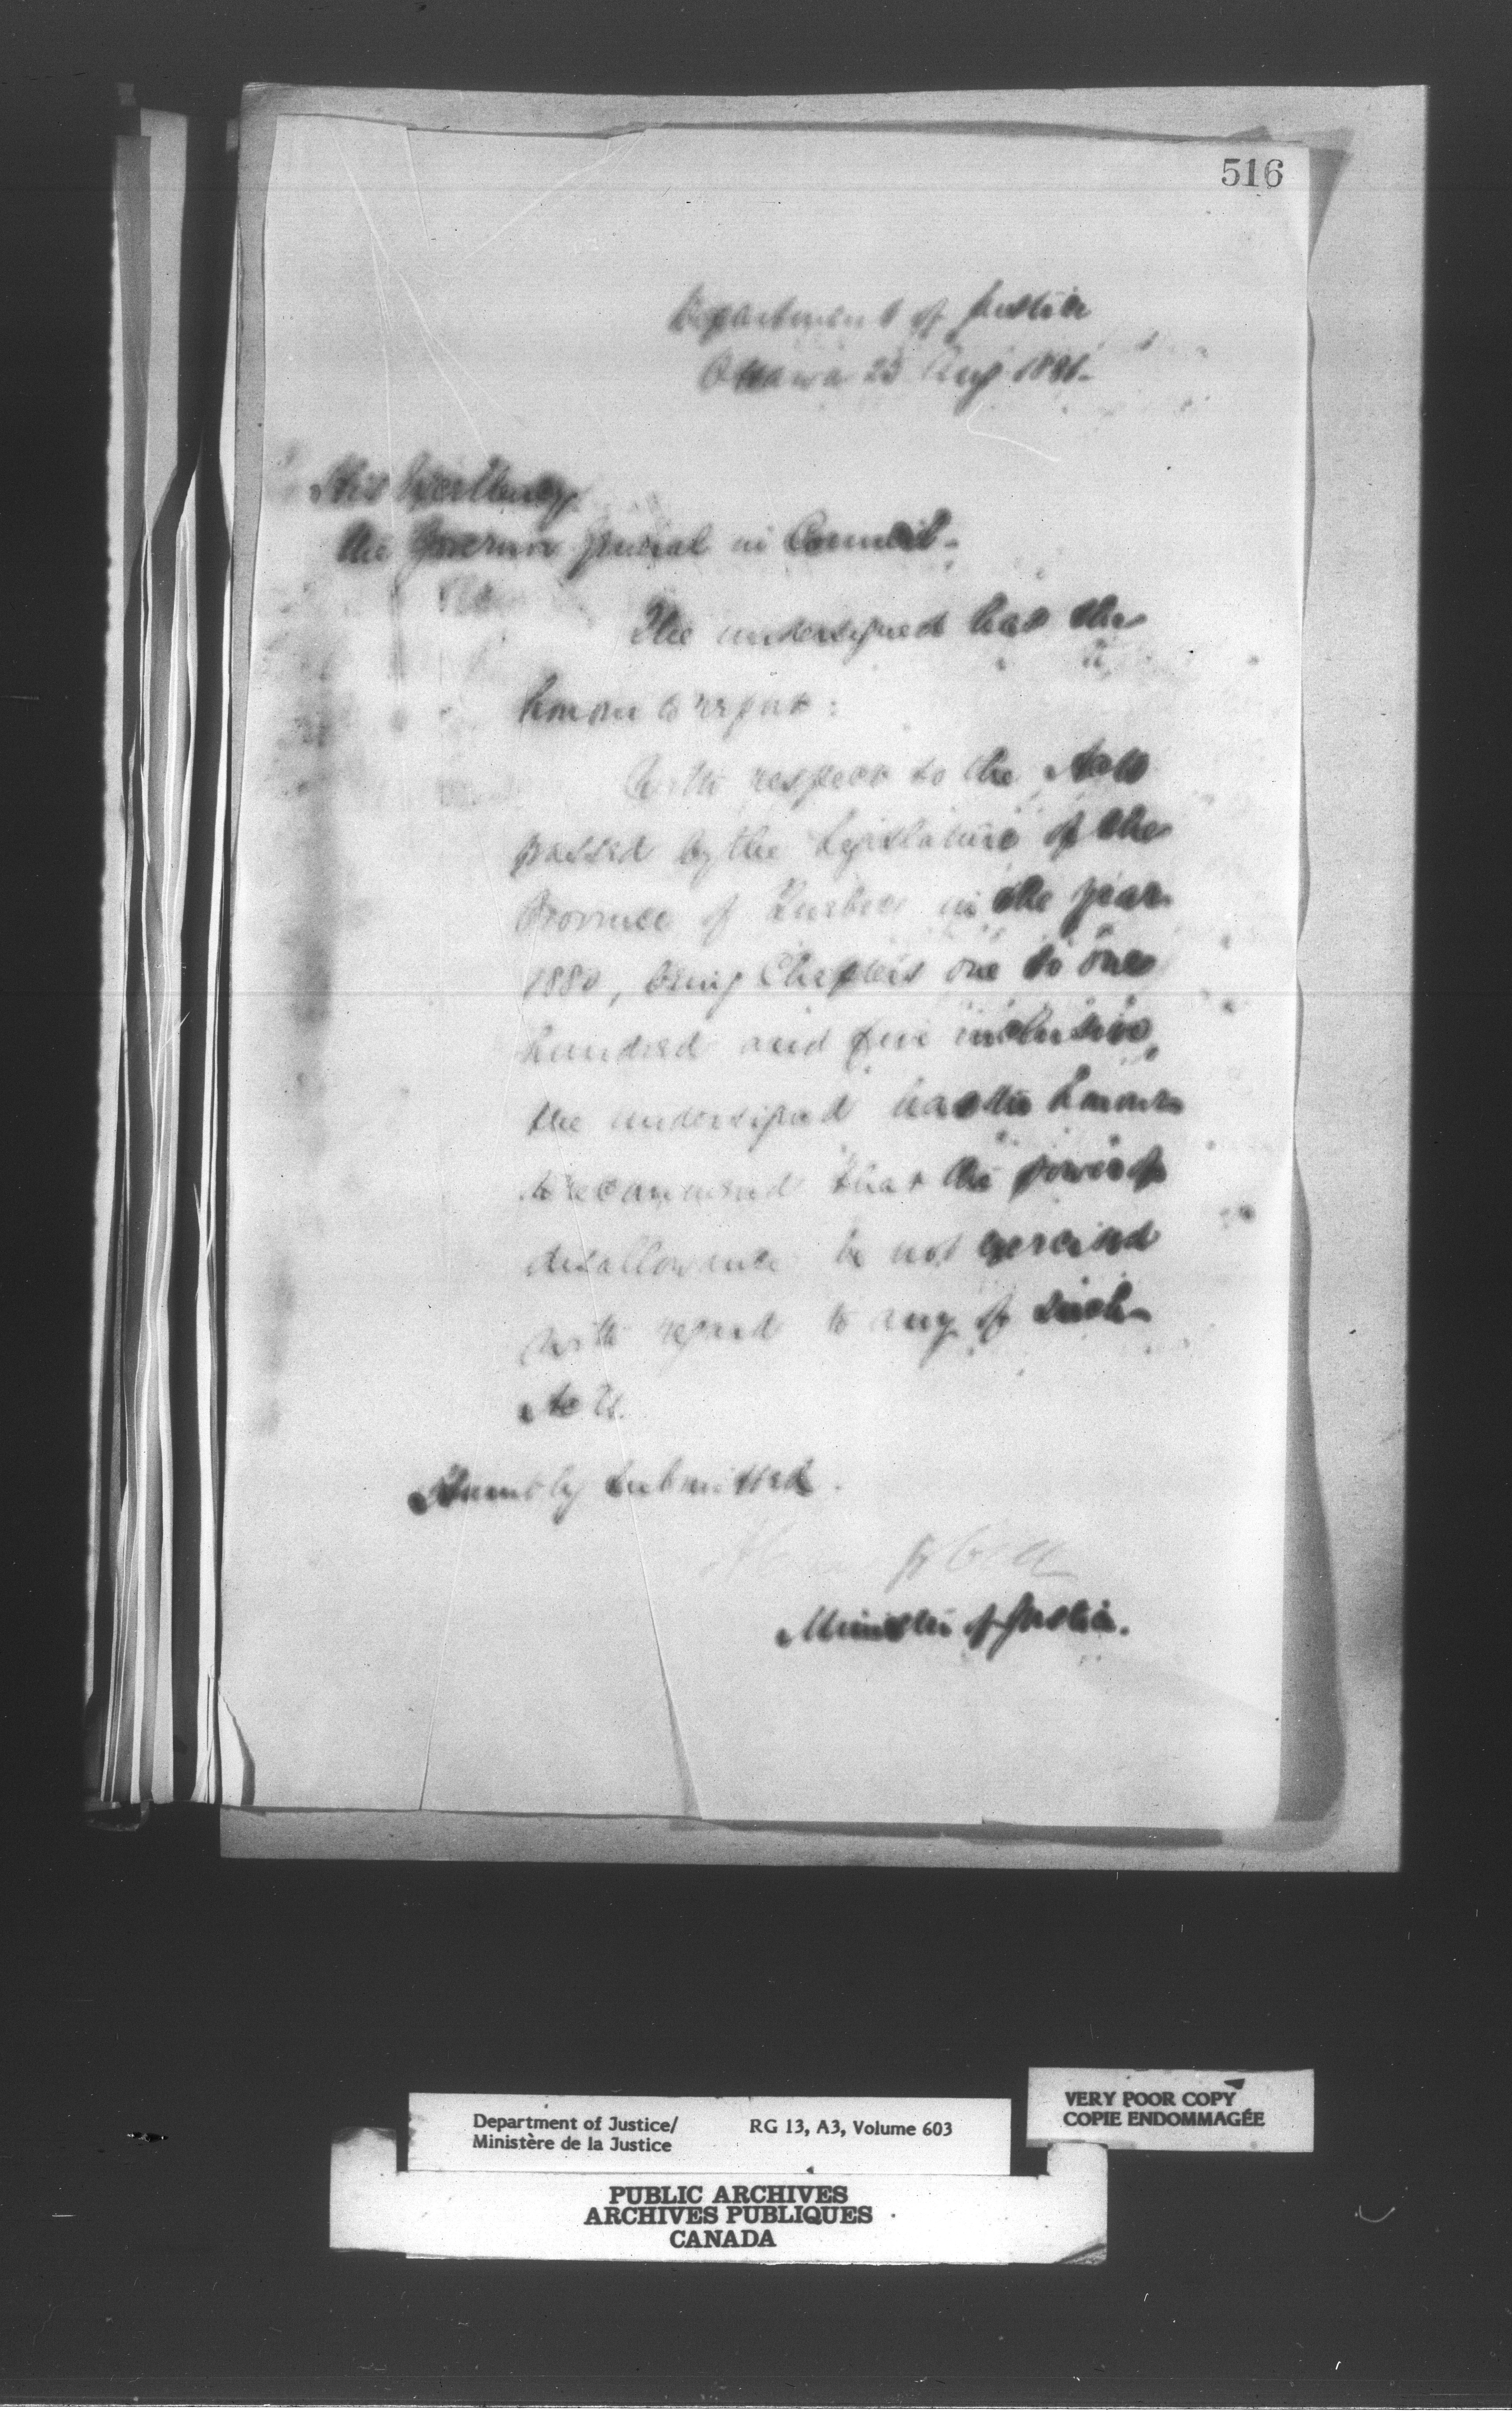 516
Department of Justice
Ottawa 23 Aug 1881.
His Excellency
the Governor General in Council.
The undersigned has the
honour to report:
With respect to the Acts
passed by the Legislature of the
Province of Quebec in the year
1880, being Chapters one to one
hundred and five inclusive,
the undersigned has the honour
to recommend that the power of
disallowance be not exercised
with regard to any of such
Acts.
Humbly submitted.
Minister of Justice.
Department of Justice/
Ministère de la Justice
RG 13, A3, Volume 603
VERY POOR COPY
COPIE ENDOMMAGÉE
PUBLIC ARCHIVES
ARCHIVES PUBLIQUES
CANADA